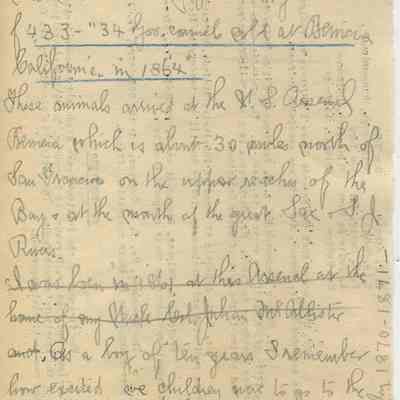 433 - "34 Gov. camels sold at Benicia
California in 1864"
These animals arrived at the U.S. Arsenal
Benicia which is about 30 miles north of
San Francisco on the upper reaches of the
Bay & at the mouth of the great Sac & S.J.
Rivers.
I was born in 1861 at this Arsenal at the
home of my Uncle Col. Julian McAllister
and. As a boy of ten years I remember
how excited we children were to go to the
1870-1871-